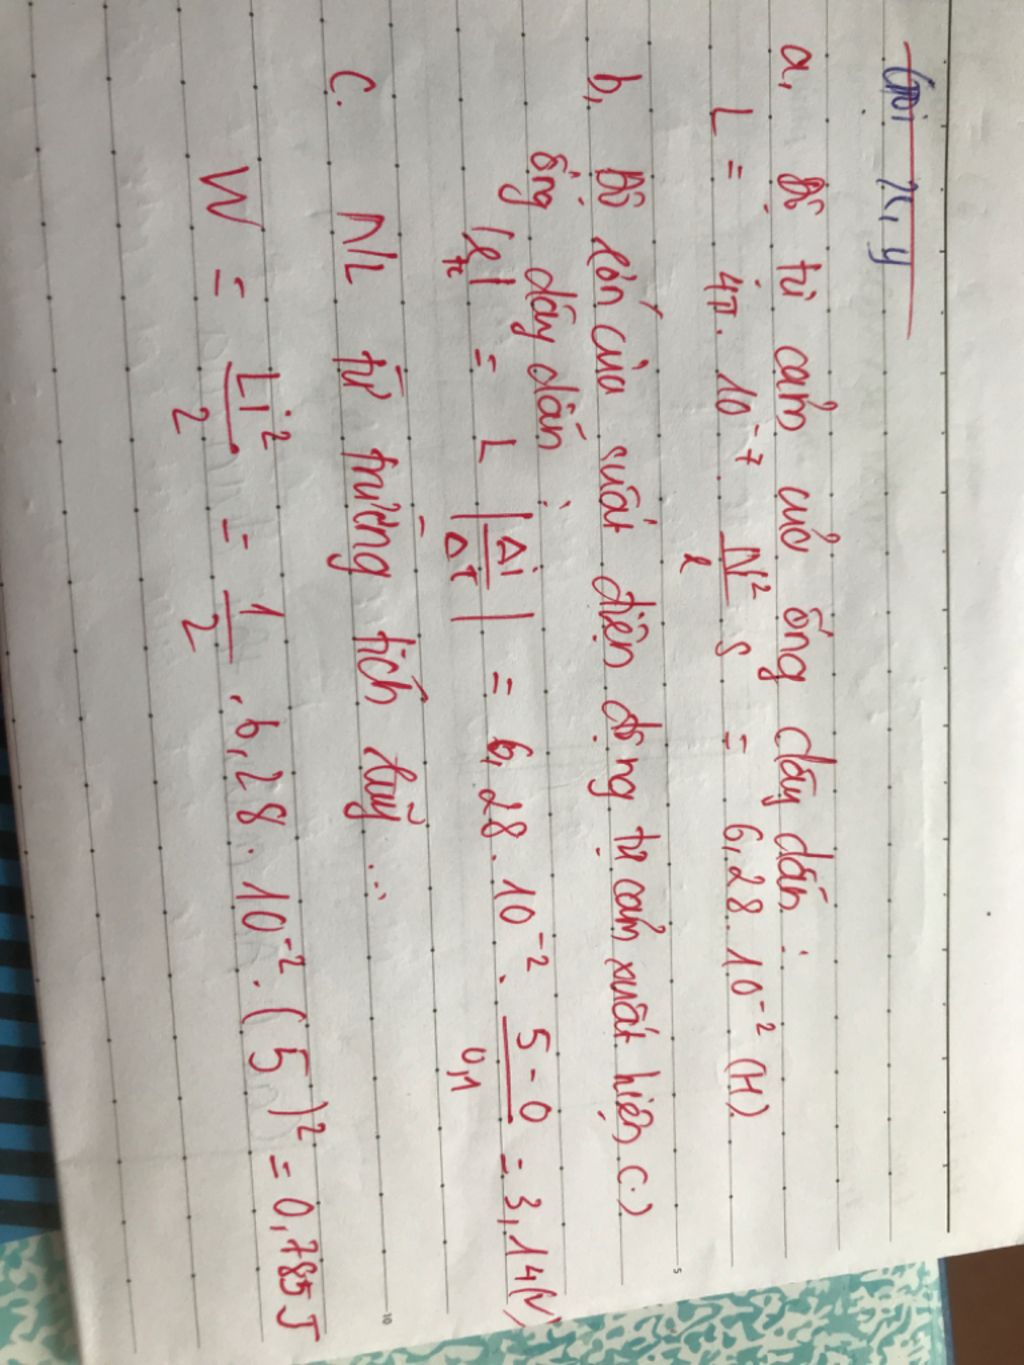 Gọi x, y
a, Độ tự cảm của ống dây dẫn:
L = 4π. 10⁻⁷ N²/l S = 6,28. 10⁻² (H)
b, Độ lớn của suất điện động tự cảm xuất hiện (.)
ống dây dẫn:
|etc| = L |Δi/Δt| = 6,28. 10⁻². 5-0/0,1 = 3,14(V)
C. N/L từ trường tích luỹ ...
W = Li²/2 = 1/2 . 6,28. 10⁻². (5)² = 0,785 J
5
10